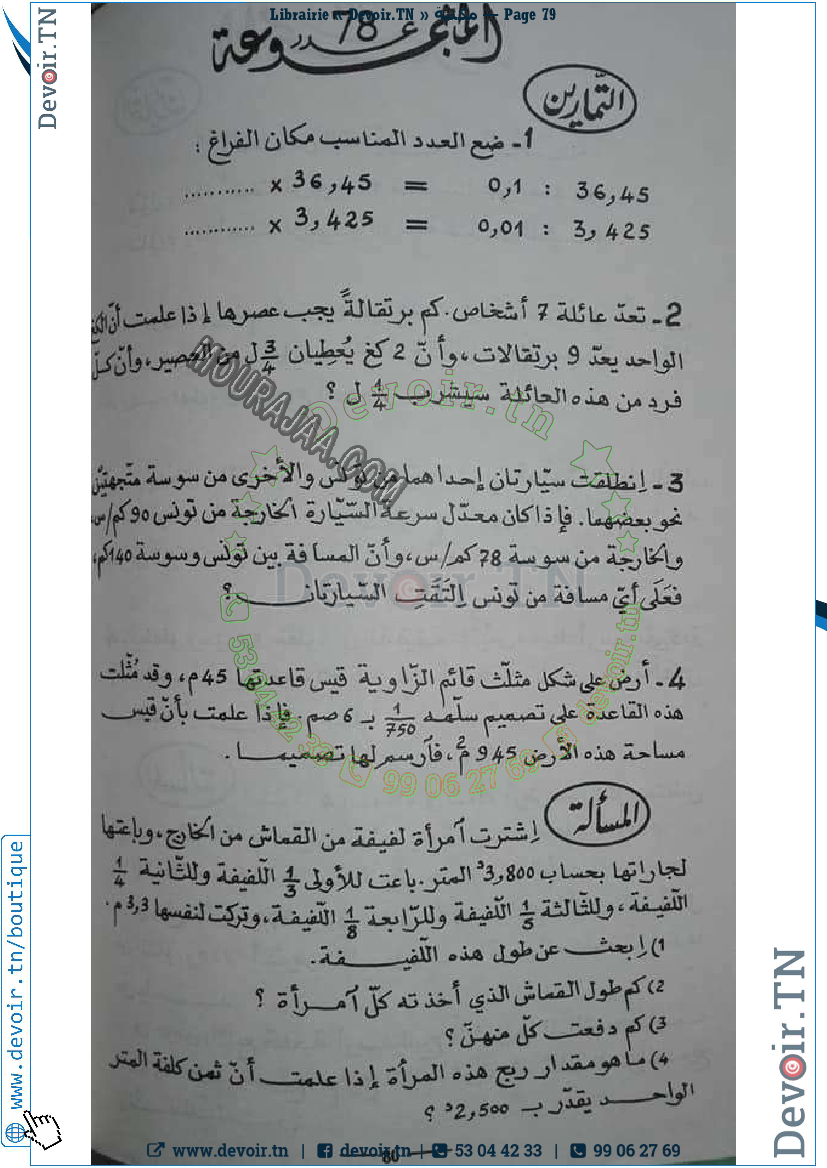 Librairie « Devoir.TN » مكتبة — Page 79
Devoir.TN
المجموعة عدد 78
التمارين
1- ضع العدد المناسب مكان الفراغ :
36,45 : 0,1 = 36,45 x ...........
3,425 : 0,01 = 3,425 x ............
2- تعدّ عائلة 7 أشخاص. كم برتقالةً يجب عصرها إذا علمت أنّ الكغ
الواحد يعدّ 9 برتقالات، وأنّ 2 كغ يُعطِيان 3/4 ل من العصير، وأنّ كلّ
فرد من هذه العائلة سيشرب 1/4 ل ؟
3- اِنطلقت سيّارتان إحداهما من تونس والأخرى من سوسة متّجهتين
نحو بعضهما. فإذا كان معدّل سرعة السّيّارة الخارجة من تونس 90 كم/س،
والخارجة من سوسة 78 كم/س، وأنّ المسافة بين تونس وسوسة 140 كم،
فعَلَى أيّ مسافة من تونس اِلتَقَتِ السّيارتان ؟
4- أرض على شكل مثلّث قائم الزّاوية قيس قاعدتها 45 م، وقد مُثّلت
هذه القاعدة على تصميم سلّمه 1/750 بـ 6 صم. فإذا علمت بأنّ قيس
مساحة هذه الأرض 945 م²، فآرسم لها تصميما.
المسألة
اِشترت آمرأة لفيفة من القماش من الخارج، وباعتها
لجاراتها بحساب 3,800د المتر. باعت للأولى 1/3 اللّفيفة وللثّانية 1/4
اللّفيفة، وللثّالثة 1/5 اللّفيفة وللرّابعة 1/8 اللّفيفة، وتركت لنفسها 3,3 م.
1) اِبحث عن طول هذه اللّفيفة.
2) كم طول القماش الذي أخذته كلّ آمرأة ؟
3) كم دفعت كلّ منهنّ ؟
4) ما هو مقدار ربح هذه المرأة إذا علمت أنّ ثمن كلفة المتر
الواحد يقدّر بـ 2,500د ؟
80
MOURAJAA.COM
Devoir.tn
Devoir.TN
53 04 42 33
99 06 27 69
devoir.tn
www.devoir.tn/boutique
Devoir.TN
www.devoir.tn | devoir.tn | 53 04 42 33 | 99 06 27 69